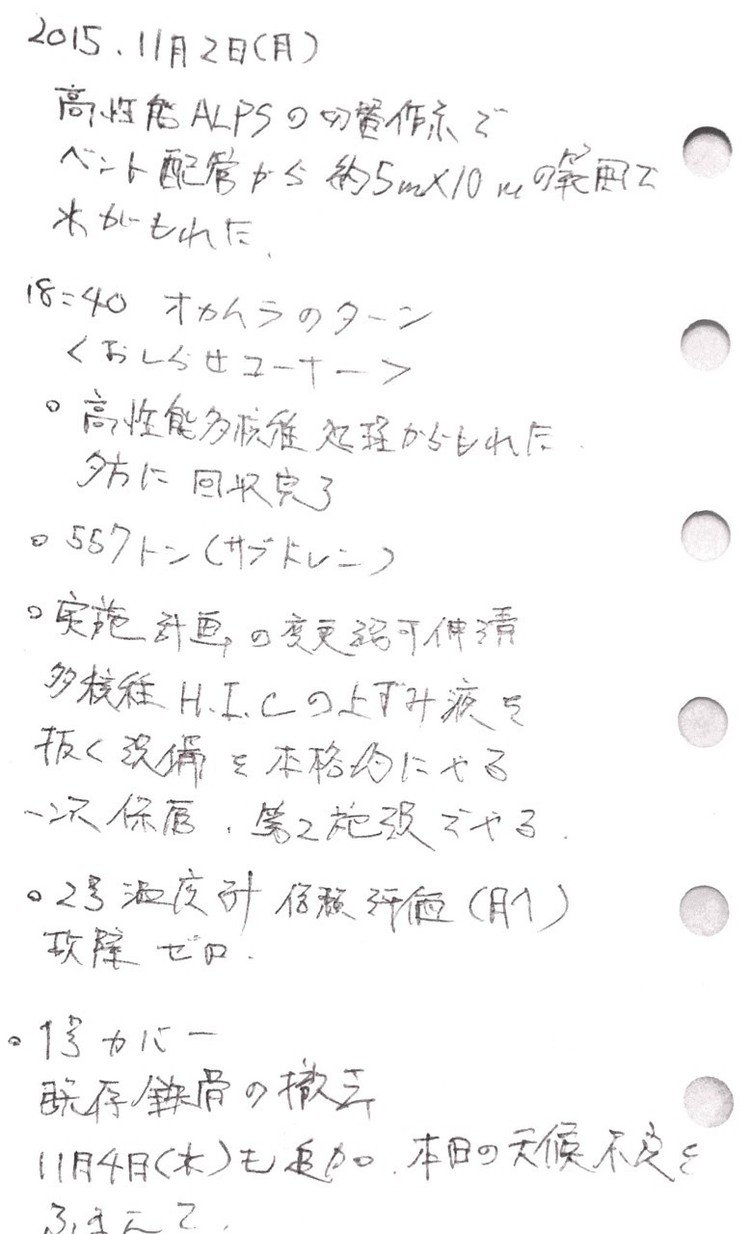 2015.11月2日(月)
高性能ALPSの切替作業で
ベント配管から約5m×10mの範囲で
水がもれた.
18:40 オカムラのターン
<おしらせコーナー>
○高性能多核種処理からもれた.
夕方に回収完了
○557トン(サブドレン)
○実施計画の変更認可申請
多核種H.I.Cの上ずみ液を
抜く設備を本格的にやる
一次保管.第2施設でやる.
○2号温度計信頼評価(月1)
故障ゼロ.
○1号カバー
既存鉄骨の撤去
11月4日(水)も追加.本日の天候不良を
ふまえて.